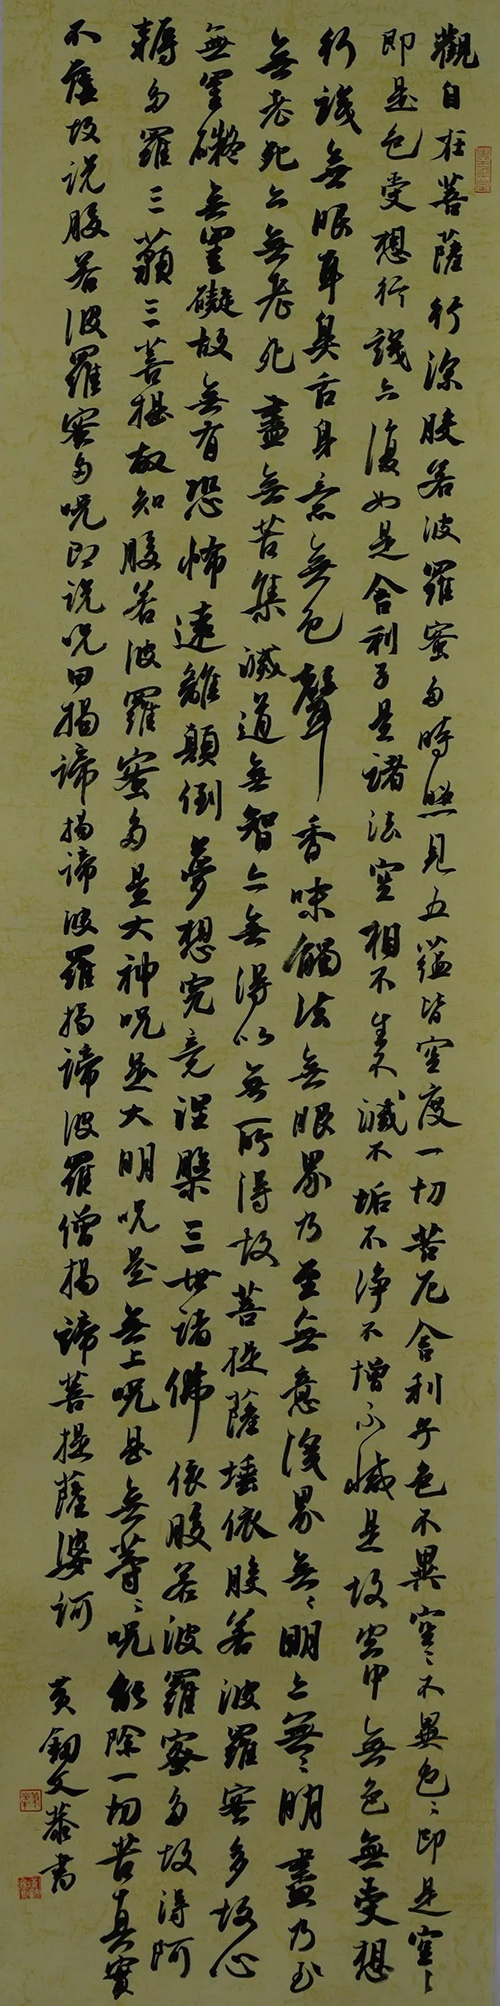 觀自在菩薩行深般若波羅蜜多時照見五蘊皆空度一切苦厄舍利子色不異空〻不異色〻即是空〻
即是色受想行識亦復如是舍利子是諸法空相不生不滅不垢不淨不增不減是故空中無色無受想
行識無眼耳鼻舌身意無色聲香味觸法無眼界乃至無意識界無〻明亦無〻明盡乃至
無老死亦無老死盡無苦集滅道無智亦無得以無所得故菩提薩埵依般若波羅蜜多故心
無罣礙無罣礙故無有恐怖遠離顛倒夢想究竟涅槃三世諸佛依般若波羅蜜多故得阿
耨多羅三藐三菩提故知般若波羅蜜多是大神咒是大明咒是無上咒是無等〻咒能除一切苦真實
不虛故說般若波羅蜜多咒即說咒曰揭諦揭諦波羅揭諦波羅僧揭諦菩提薩婆訶
黃劍文恭書